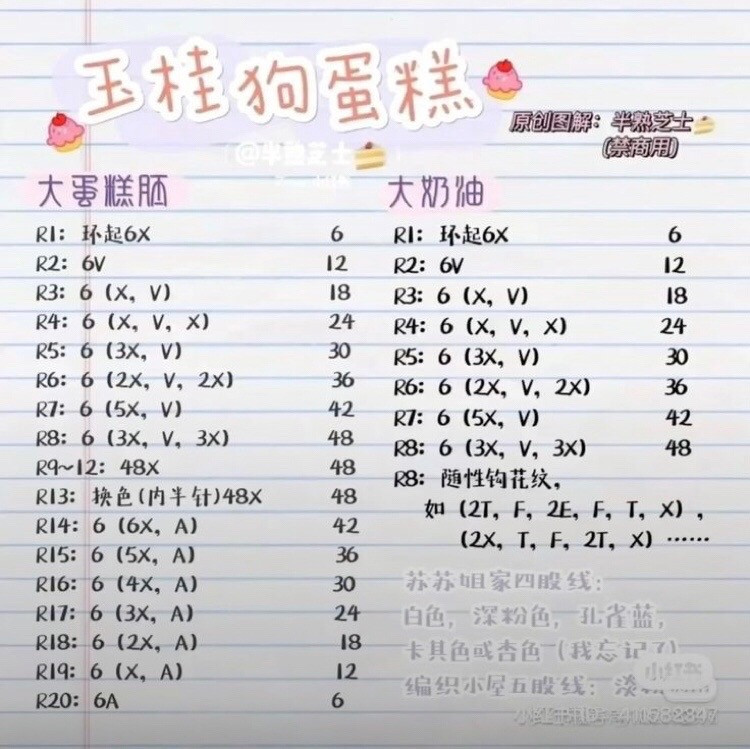 玉桂狗蛋糕
@半熟芝士
原创图解：半熟芝士
(禁商用)
大蛋糕胚
R1：环起6X 6
R2：6V 12
R3：6（X，V） 18
R4：6（X，V，X） 24
R5：6（3X，V） 30
R6：6（2X，V，2X） 36
R7：6（5X，V） 42
R8：6（3X，V，3X） 48
R9~12：48X 48
R13：换色(内半针)48X 48
R14：6（6X，A） 42
R15：6（5X，A） 36
R16：6（4X，A） 30
R17：6（3X，A） 24
R18：6（2X，A） 18
R19：6（X，A） 12
R20：6A 6
大奶油
R1：环起6X 6
R2：6V 12
R3：6（X，V） 18
R4：6（X，V，X） 24
R5：6（3X，V） 30
R6：6（2X，V，2X） 36
R7：6（5X，V） 42
R8：6（3X，V，3X） 48
R8：随性钩花纹，
如（2T，F，2E，F，T，X），
（2X，T，F，2T，X）……
苏苏姐家四股线：
白色，深粉色，孔雀蓝，
卡其色或杏色（我忘记了）
编织小屋五股线：淡
小红书